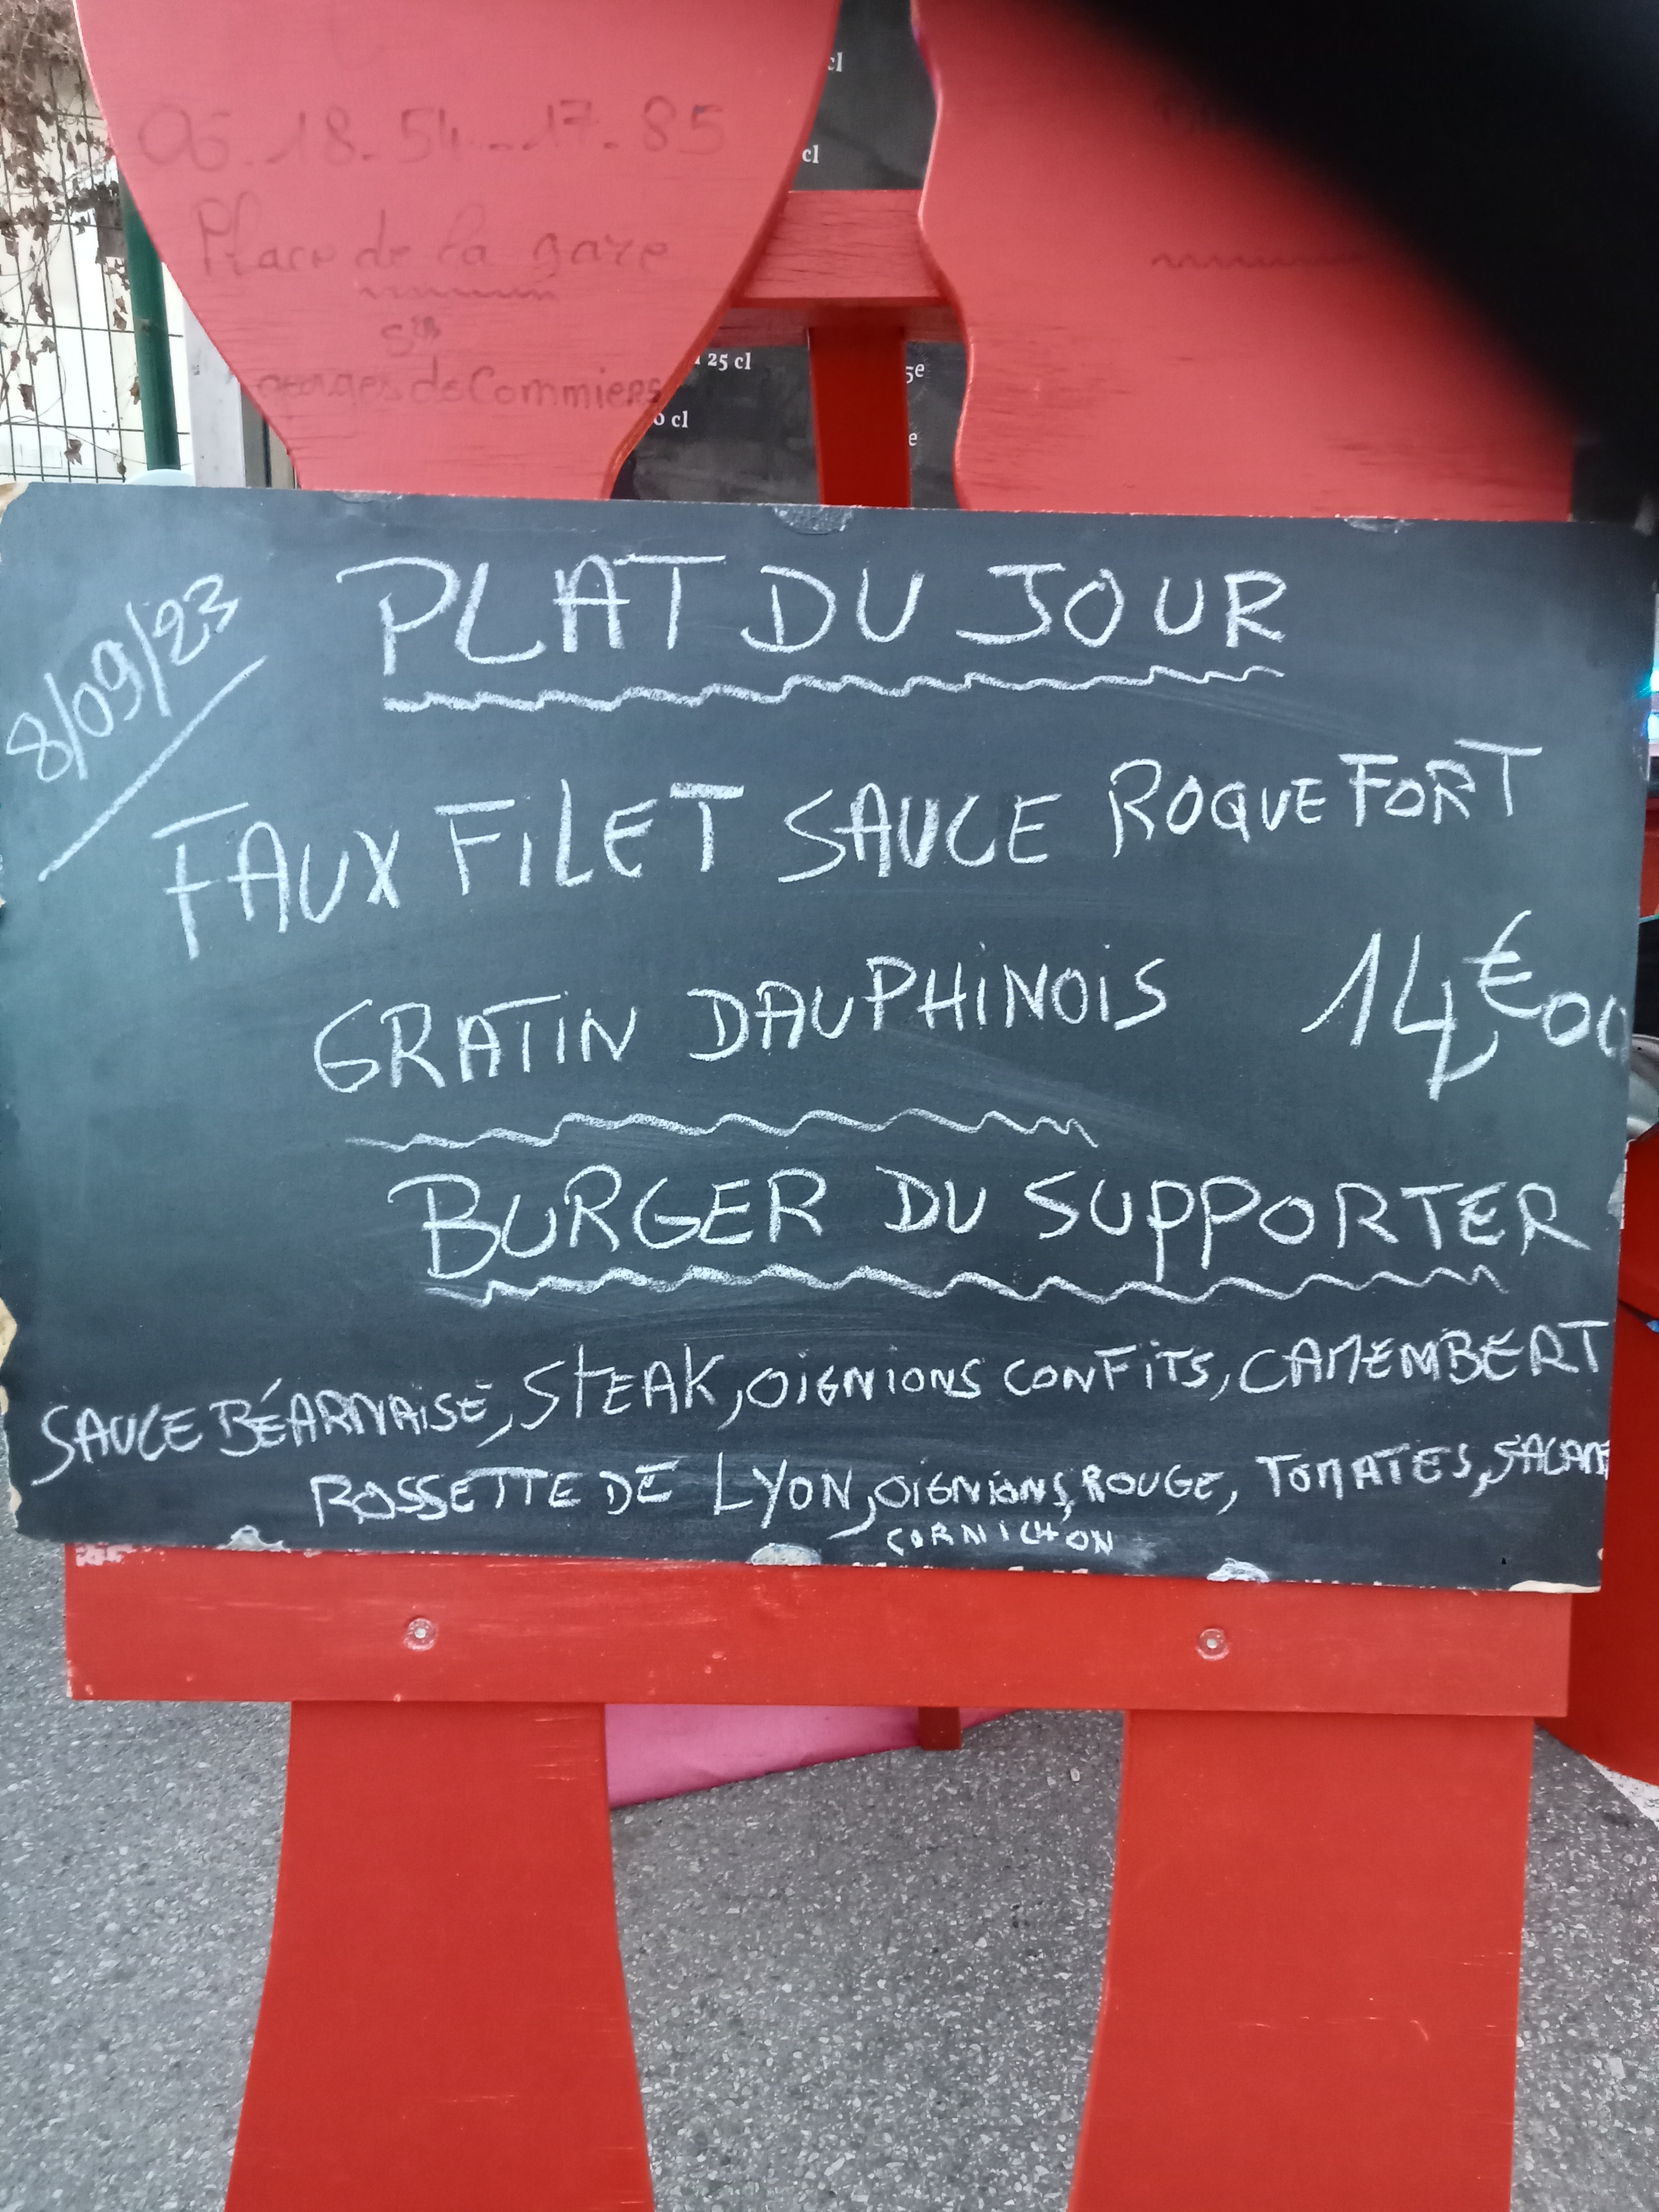 cl
06.18.54.17.85
cl
Place de la gare
St
Georges de Commiers
25 cl
5e
0 cl
e
8/09/23
PLAT DU JOUR
FAUX FILET SAUCE ROQUEFORT
GRATIN DAUPHINOIS 14€00
BURGER DU SUPPORTER
SAUCE BÉARNAISE, STEAK, OIGNIONS CONFITS, CAMEMBERT
ROSSETTE DE LYON, OIGNIONS, ROUGE, TOMATES, SALADE
CORNICHON